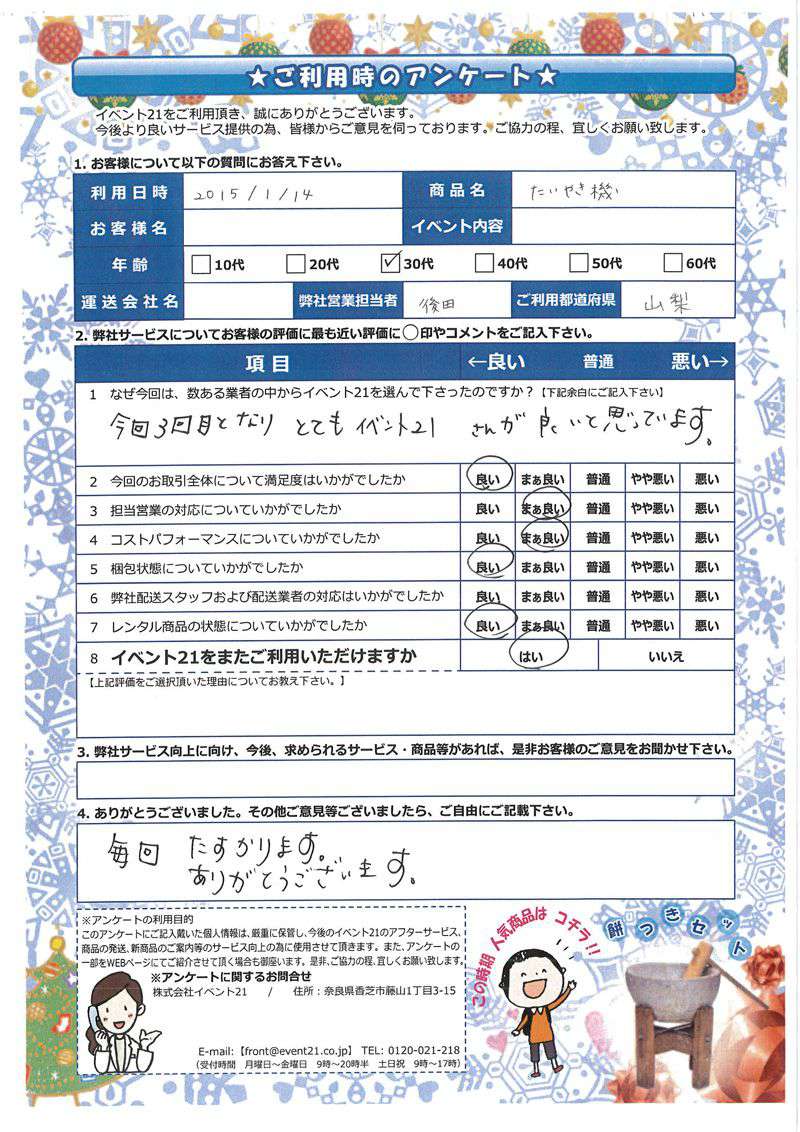 ★ご利用時のアンケート★
イベント21をご利用頂き、誠にありがとうございます。
今後より良いサービス提供の為、皆様からご意見を伺っております。ご協力の程、宜しくお願い致します。
1. お客様について以下の質問にお答え下さい。
利用日時 2015/1/14 商品名 たいやき機
お客様名 イベント内容
年齢 10代 20代 ✓30代 40代 50代 60代
運送会社名 弊社営業担当者 後田 ご利用都道府県 山梨
2. 弊社サービスについてお客様の評価に最も近い評価に○印やコメントをご記入下さい。
項目 ←良い 普通 悪い→
1 なぜ今回は、数ある業者の中からイベント21を選んで下さったのですか？【下記余白にご記入下さい】
今回3回目となり とてもイベント21 さんが良いと思っています。
2 今回のお取引全体について満足度はいかがでしたか 良い まぁ良い 普通 やや悪い 悪い
3 担当営業の対応についていかがでしたか 良い まぁ良い 普通 やや悪い 悪い
4 コストパフォーマンスについていかがでしたか 良い まぁ良い 普通 やや悪い 悪い
5 梱包状態についていかがでしたか 良い まぁ良い 普通 やや悪い 悪い
6 弊社配送スタッフおよび配送業者の対応はいかがでしたか 良い まぁ良い 普通 やや悪い 悪い
7 レンタル商品の状態についていかがでしたか 良い まぁ良い 普通 やや悪い 悪い
8 イベント21をまたご利用いただけますか はい いいえ
【上記評価をご選択頂いた理由についてお教え下さい。】
3. 弊社サービス向上に向け、今後、求められるサービス・商品等があれば、是非お客様のご意見をお聞かせ下さい。
4. ありがとうございました。その他ご意見等ございましたら、ご自由にご記載下さい。
毎回 たすかります。
ありがとうございます。
※アンケートの利用目的
このアンケートにご記入戴いた個人情報は、厳重に保管し、今後のイベント21のアフターサービス、
商品の発送、新商品のご案内等のサービス向上の為に使用させて頂きます。また、アンケートの
一部をWEBページにてご紹介させて頂く場合も御座います。是非、ご協力の程、宜しくお願い致します。
※アンケートに関するお問合せ
株式会社イベント21 / 住所：奈良県香芝市藤山1丁目3-15
E-mail:【front@event21.co.jp】 TEL: 0120-021-218
（受付時間 月曜日～金曜日 9時～20時半 土日祝 9時～17時）
この時期 人気商品は コチラ!!
餅つきセット